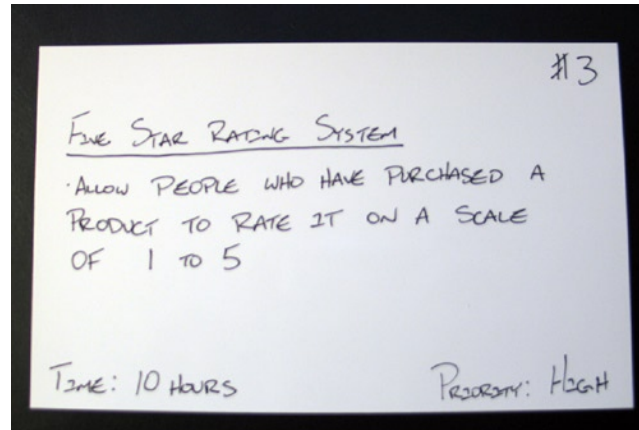 #3
FIVE STAR RATING SYSTEM
· ALLOW PEOPLE WHO HAVE PURCHASED A
PRODUCT TO RATE IT ON A SCALE
OF 1 TO 5
TIME: 10 HOURS
PRIORITY: HIGH